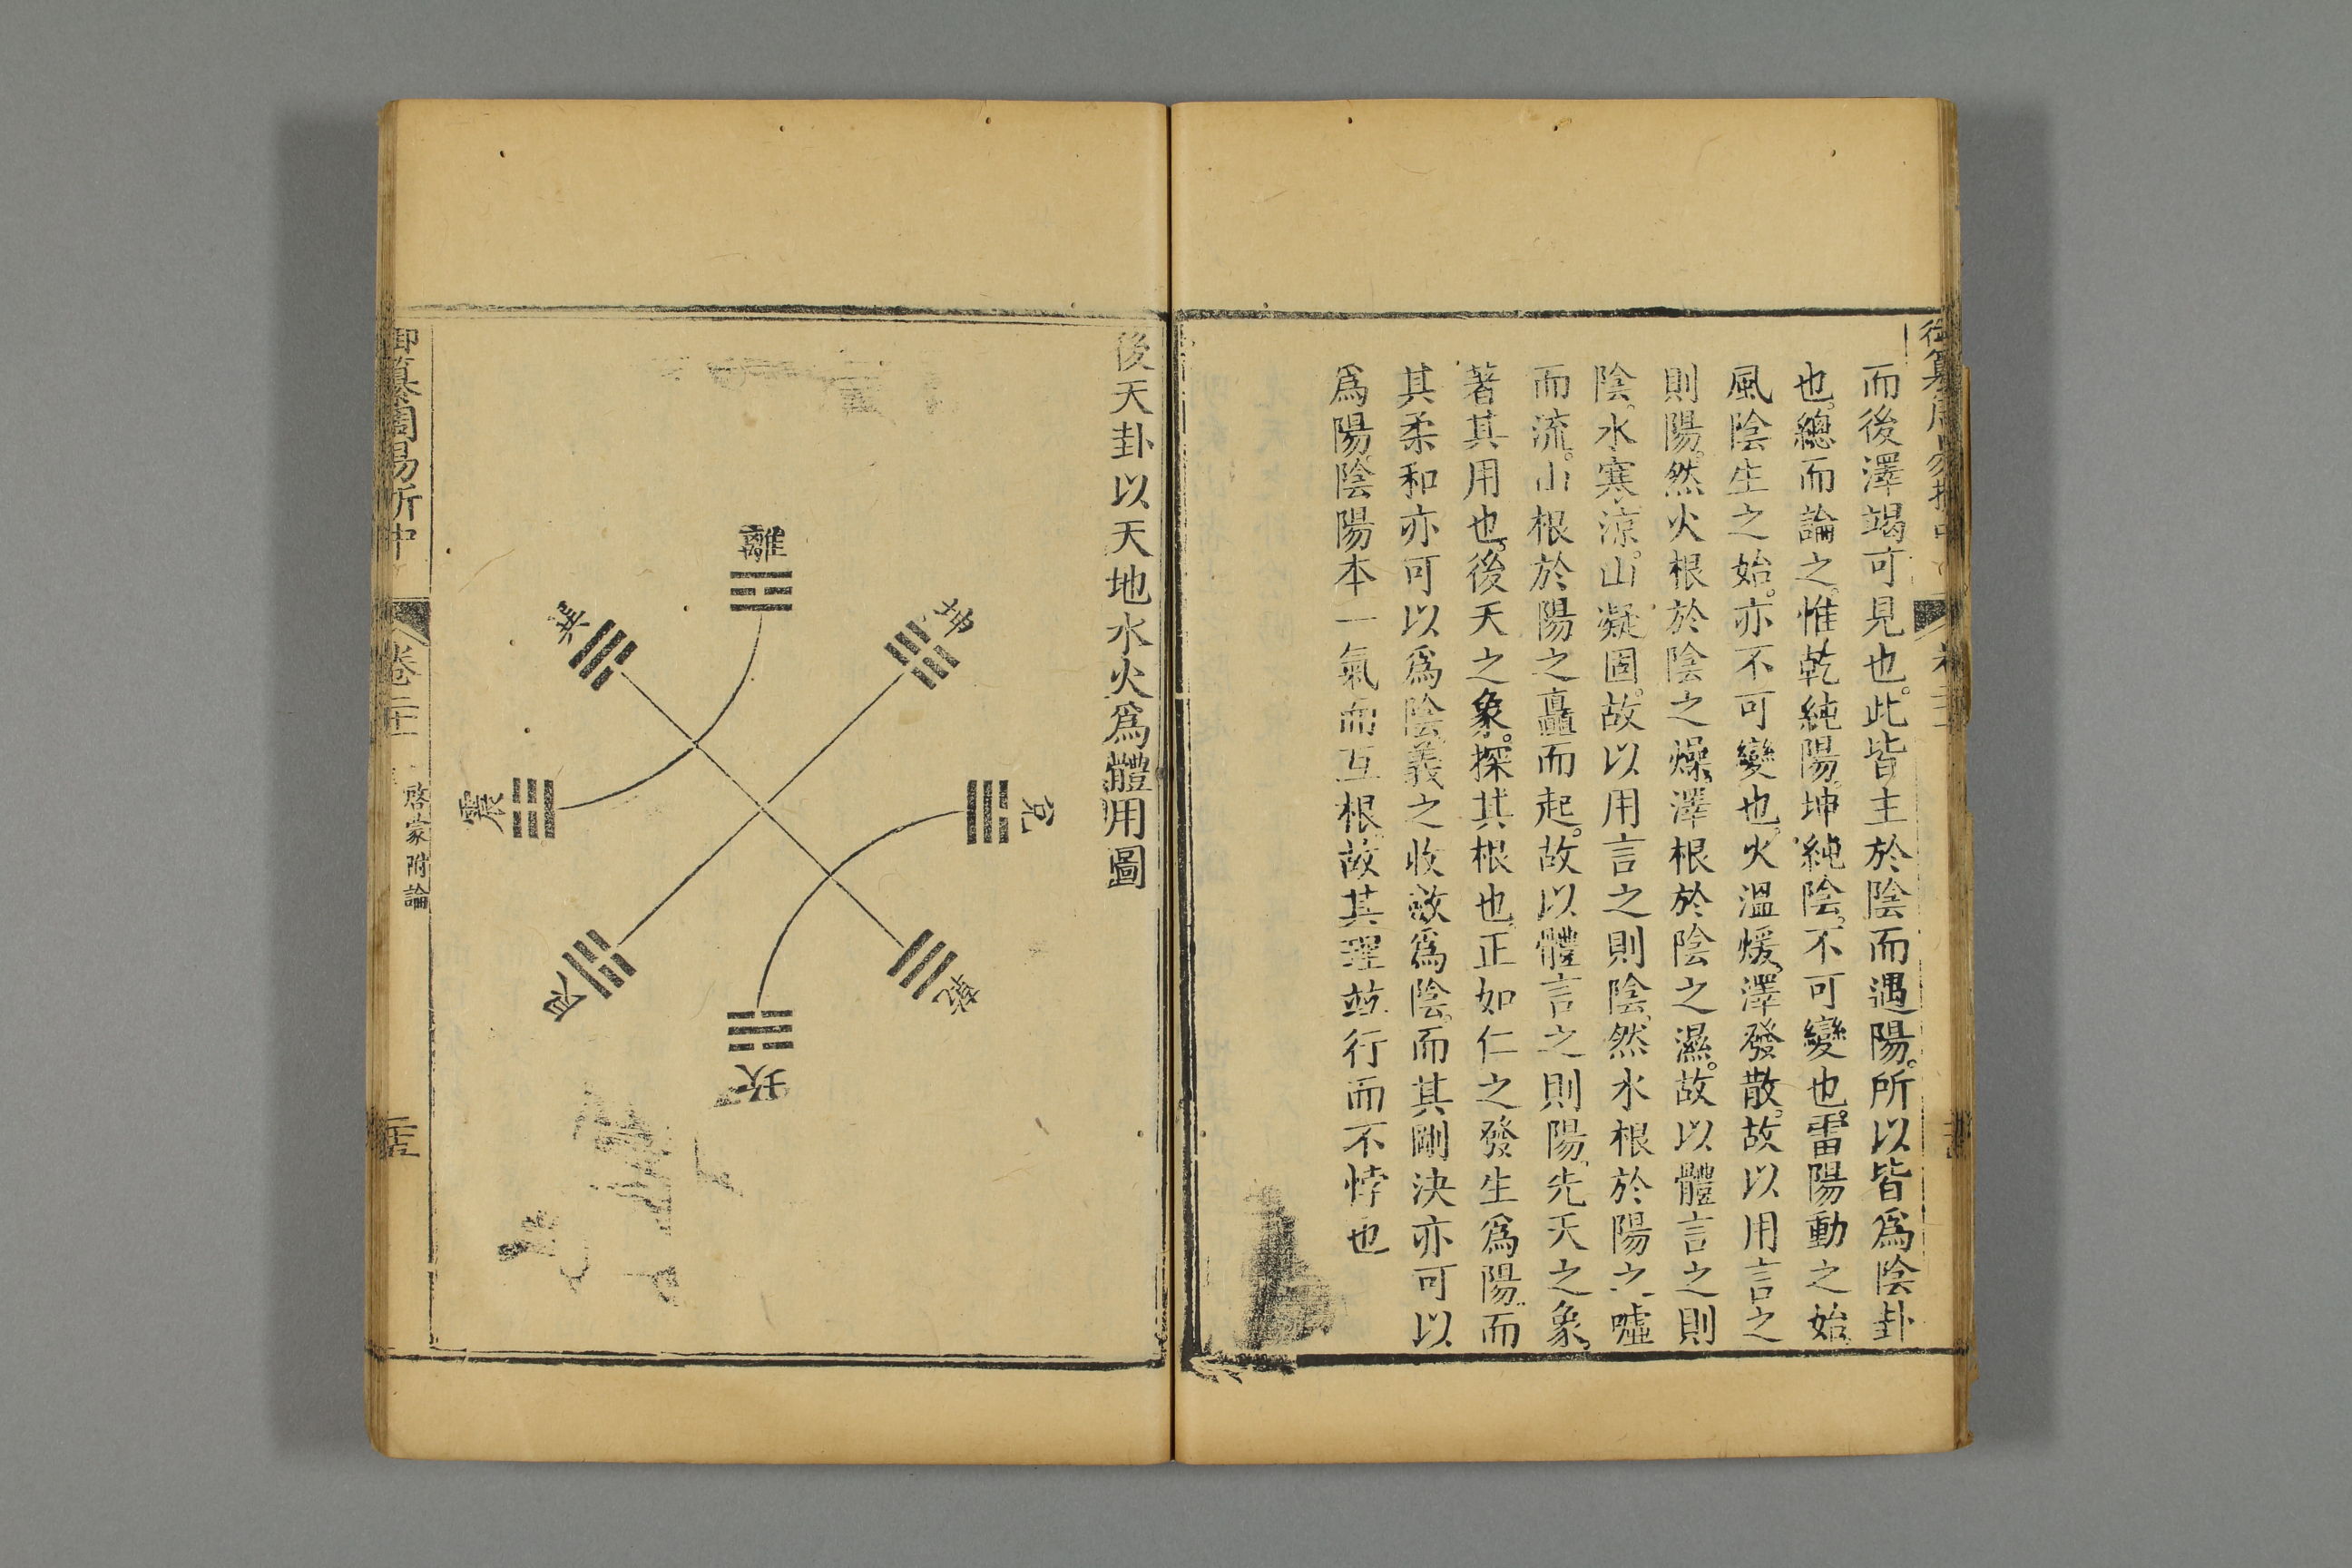 而後澤竭可見也。此皆主於陰而遇陽。所以皆爲陰卦
也。總而論之。惟乾純陽。坤純陰。不可變也。雷陽動之始。
風陰生之始。亦不可變也。火溫煖。澤發散。故以用言之
則陽。然火根於陰之燥。澤根於陰之濕。故以體言之則
陰。水寒涼。山凝固。故以用言之則陰。然水根於陽之噓
而流。山根於陽之矗而起。故以體言之則陽。先天之象。
著其用也。後天之象。探其根也。正如仁之發生爲陽。而
其柔和亦可以爲陰。義之收斂爲陰。而其剛決亦可以
爲陽。陰陽本一氣而互根。故其理竝行而不悖也
後天卦以天地水火爲體用圖
離
坤
兌
乾
坎
艮
震
巽
御纂周易折中
卷二十
啓蒙附論